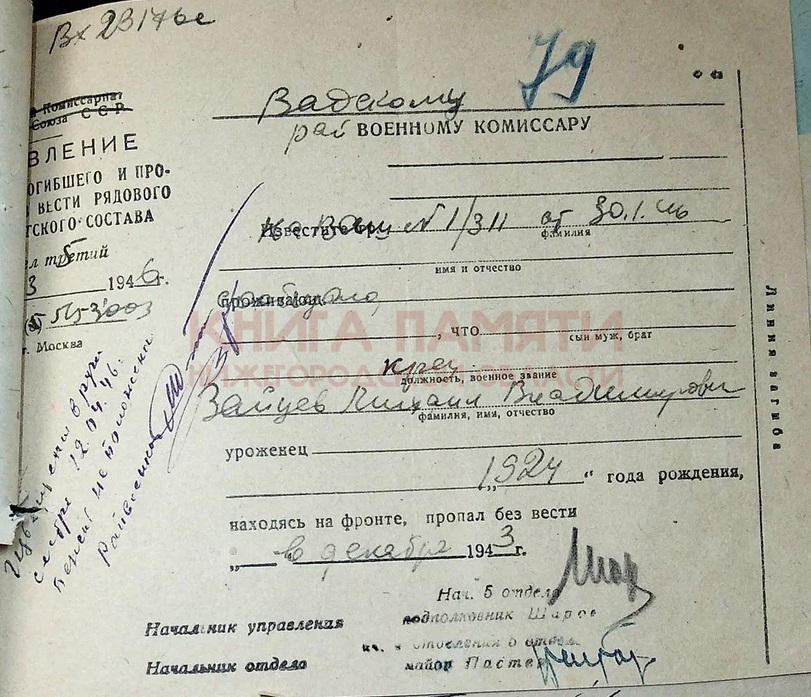 Вх 23176с
79
Комиссариат
Союза ССР
ВЛЕНИЕ
ОГИБШЕГО И ПРО-
ВЕСТИ РЯДОВОГО
ТСКОГО СОСТАВА
л третий
5
3 1946г.
г. Москва
Вадскому
рай ВОЕННОМУ КОМИССАРУ
Известите гр.
На Ваш № 1/311 от 30.1.46
фамилия
имя и отчество
проживающ.
Сообщаю,
, что
сын муж, брат
крец
должность, военное звание
Зайцев Михаил Владимирович
фамилия, имя, отчество
уроженец
„1924“ года рождения,
находясь на фронте, пропал без вести
„ в декабре 1943г.
Нач. 5 отдела
Начальник управления подполковник Шаров
отделения 5 отдела
Начальник отдела майор Пастер
Линия загиба
КНИГА ПАМЯТИ
НИЖЕГОРОДСКОЙ ОБЛАСТИ
в руки
сестре 12.04.46.
пенсия не положена